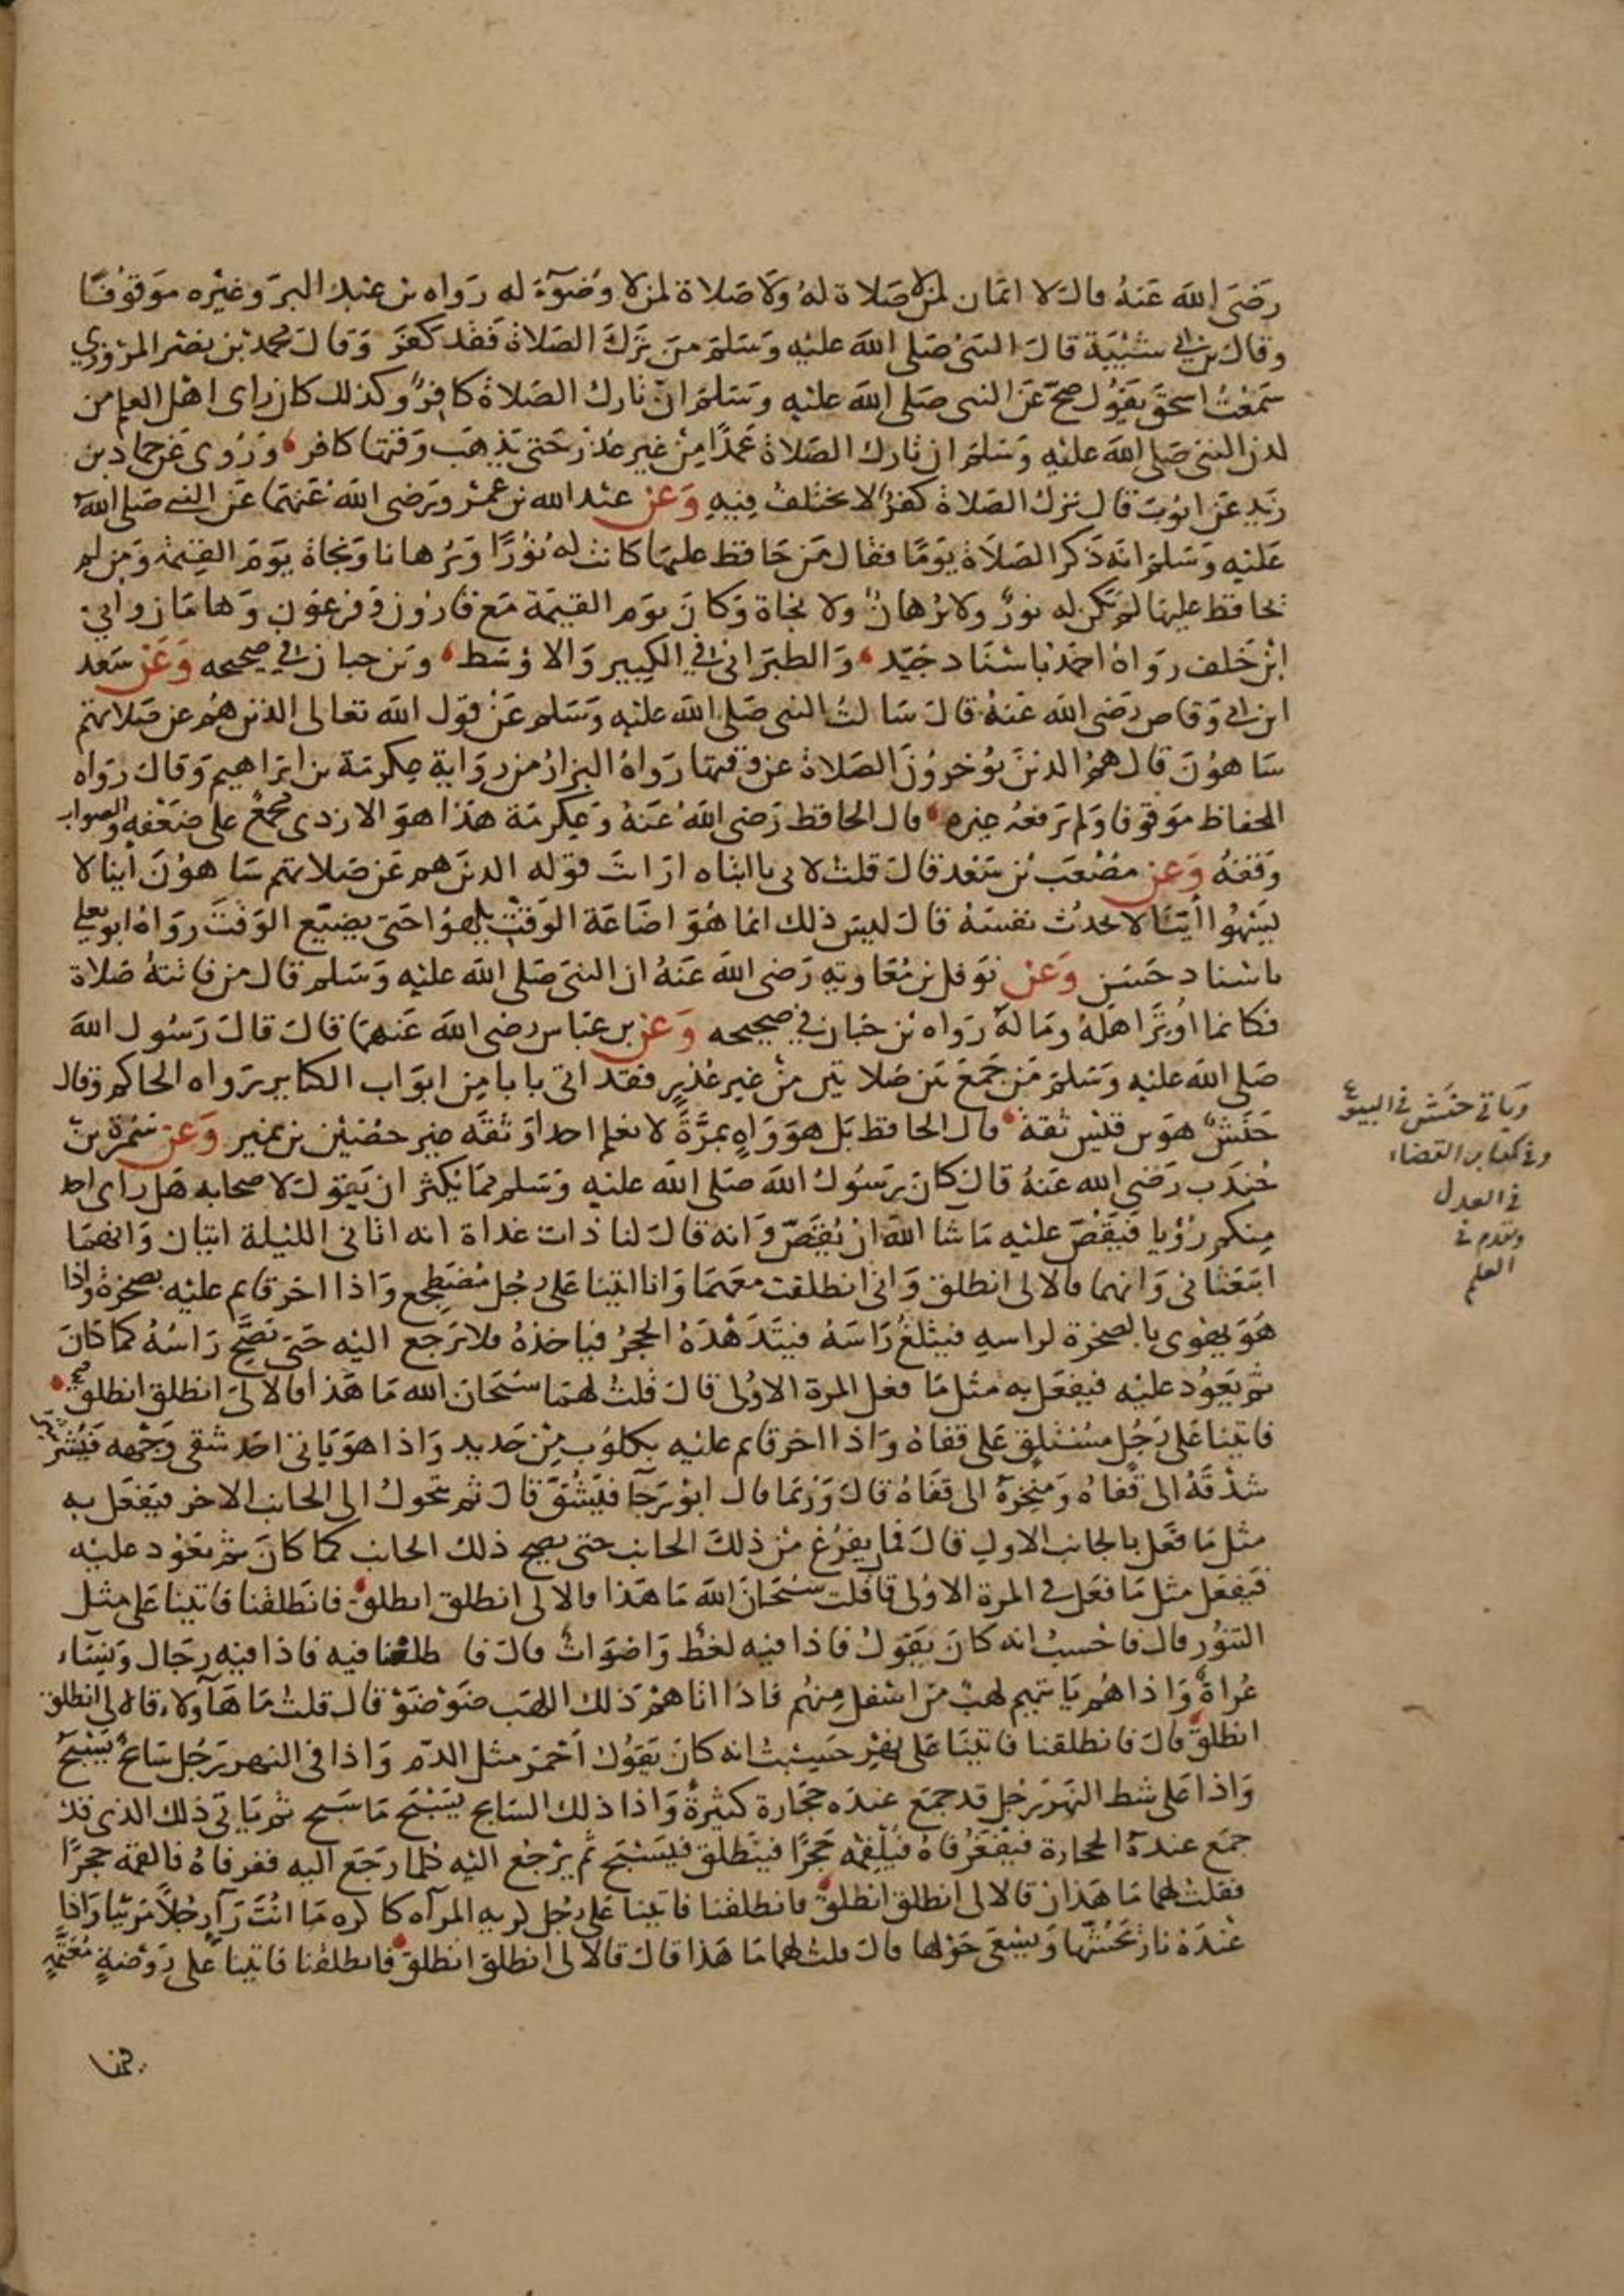 رضي الله عنه قال لا ايمان لمن لا صلاة له ولا صلاة لمن لا وضوء له رواه بن عبد البر وغيره موقوفا
وقال بن ابي شيبة قال النبي صلى الله عليه وسلم من ترك الصلاة فقد كفر وقال محمد بن نصر المروزي
سمعت اسحق يقول صح عن النبي صلى الله عليه وسلم ان تارك الصلاة كافر وكذلك كان راى اهل العلم من
لدن النبي صلى الله عليه وسلم ان تارك الصلاة عمدا من غير عذر حتى يذهب وقتها كافر وروى عن حماد بن
زيد عن ايوب قال ترك الصلاة كفر لا يختلف فيه وعن عبد الله بن عمرو رضي الله عنهما عن النبي صلى الله
عليه وسلم انه ذكر الصلاة يوما فقال من حافظ عليها كانت له نورا وبرهانا ونجاة يوم القيمة ومن لم
يحافظ عليها لم يكن له نور ولا برهان ولا نجاة وكان يوم القيمة مع قارون وفرعون وهامان وابي
ابن خلف رواه احمد باسناد جيد والطبراني في الكبير والاوسط وبن حبان في صحيحه وعن سعد
ابن ابي وقاص رضي الله عنه قال سالت النبي صلى الله عليه وسلم عن قول الله تعالى الذين هم عن صلاتهم
ساهون قال هم الذين يوخرون الصلاة عن وقتها رواه البزار من رواية عكرمة بن ابراهيم وقال رواه
الحفاظ موقوفا ولم يرفعه غيره قال الحافظ رضي الله عنه وعكرمة هذا هو الازدى مجمع على ضعفه والصواب
وقفه وعن مصعب بن سعد قال قلت لابي يا ابتاه ارايت قوله الذين هم عن صلاتهم ساهون اينا لا
يسهوا اينا لا يحدث نفسه قال ليس ذلك انما هو اضاعة الوقت يلهوا حتى يضيع الوقت رواه ابو يعلى
باسناد حسن وعن نوفل بن معاوية رضي الله عنه ان النبي صلى الله عليه وسلم قال من فاتته صلاة
فكانما اوتر اهله وماله رواه بن حبان في صحيحه وعن بن عباس رضي الله عنهما قال قال رسول الله
صلى الله عليه وسلم من جمع بين صلاتين من غير عذر فقد اتى بابا من ابواب الكباير رواه الحاكم وقال
حنش هو بن قيس ثقة قال الحافظ بل هو واه بمرة لا نعلم احدا وثقه غير حصين بن نمير وعن سمرة بن
جندب رضي الله عنه قال كان رسول الله صلى الله عليه وسلم مما يكثر ان يقول لاصحابه هل راى احد
منكم رؤيا فيقص عليه ما شا الله ان يقص وانه قال لنا ذات غداة انه اتاني الليلة اتيان وانهما
ابتعثاني وانهما قالا لي انطلق واني انطلقت معهما وانا اتينا على رجل مضطجع واذا اخر قايم عليه بصخرة واذا
هو يهوى بالصخرة لراسه فيثلغ راسه فيتدهده الحجر فياخذه فلا يرجع اليه حتى يصح راسه كما كان
ثم يعود عليه فيفعل به مثل ما فعل المرة الاولى قال قلت لهما سبحان الله ما هذا قالا لي انطلق انطلق
فاتينا على رجل مستلق على قفاه واذا اخر قايم عليه بكلوب من حديد واذا هو ياتي احد شقي وجهه فيشرشر
شدقه الى قفاه ومنخره الى قفاه قال وربما قال ابو رجآ فيشق قال ثم يتحول الى الجانب الاخر فيفعل به
مثل ما فعل بالجانب الاول قال فما يفرغ من ذلك الجانب حتى يصح ذلك الجانب كما كان ثم يعود عليه
فيفعل مثل ما فعل في المرة الاولى قال قلت سبحان الله ما هذا قالا لي انطلق انطلق فانطلقنا فاتينا على مثل
التنور قال فاحسب انه كان يقول فاذا فيه لغط واصوات قال فاطلعنا فيه فاذا فيه رجال ونساء
عراة واذا هم ياتيهم لهب من اسفل منهم فاذا اتاهم ذلك اللهب ضوضوْ قال قلت ما هآولاء قالا لي انطلق
انطلق قال فانطلقنا فاتينا على نهر حسبت انه كان يقول احمر مثل الدم واذا في النهر رجل سابح يسبح
واذا على شط النهر رجل قد جمع عنده حجارة كثيرة واذا ذلك السابح يسبح ما سبح ثم ياتي ذلك الذي قد
جمع عنده الحجارة فيفغر فاه فيلقمه حجرا فينطلق فيسبح ثم يرجع اليه كلما رجع اليه فغر فاه فالقمه حجرا
فقلت لهما ما هذان قالا لي انطلق انطلق فانطلقنا فاتينا على رجل كريه المرآه كاكره ما انت رآ رجلا مريا واذا
عنده نار يحشها ويسعى حولها قال قلت لهما ما هذا قال قالا لي انطلق انطلق فانطلقنا فاتينا على روضة معتمة
وياتي حنش في البيوع
وفي كتاب القضاء
في العدل
وتقدم في
العلم